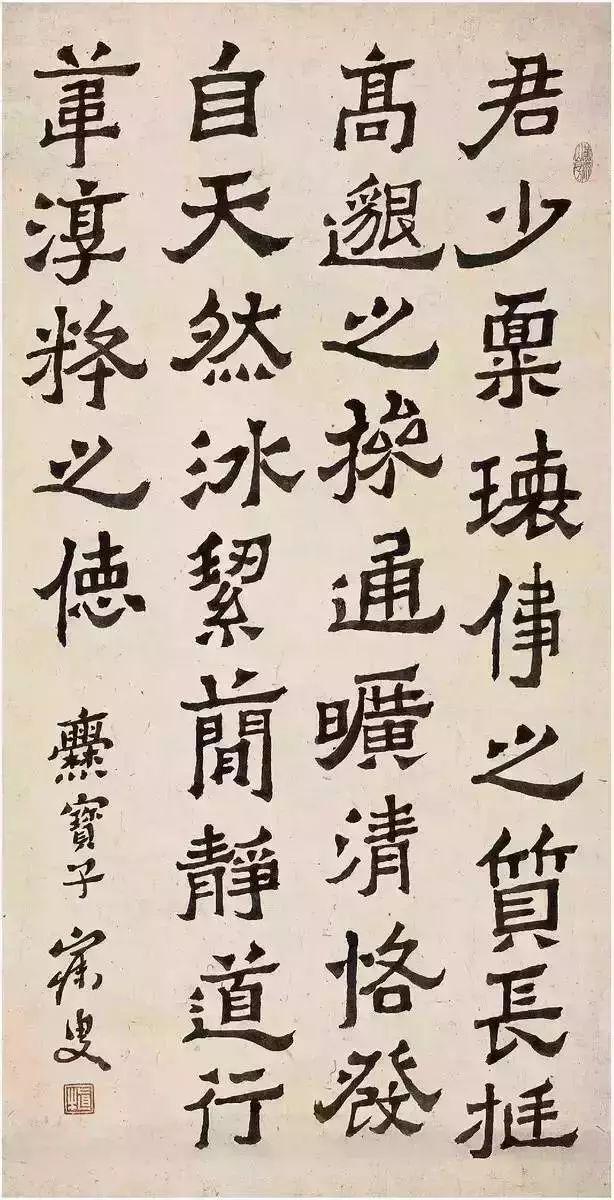 君少稟瓌偉之質長挺
髙邈之操通曠清恪發
自天然冰絜蕳靜道行
葦淳粹之徳
爨寶子 寐叟